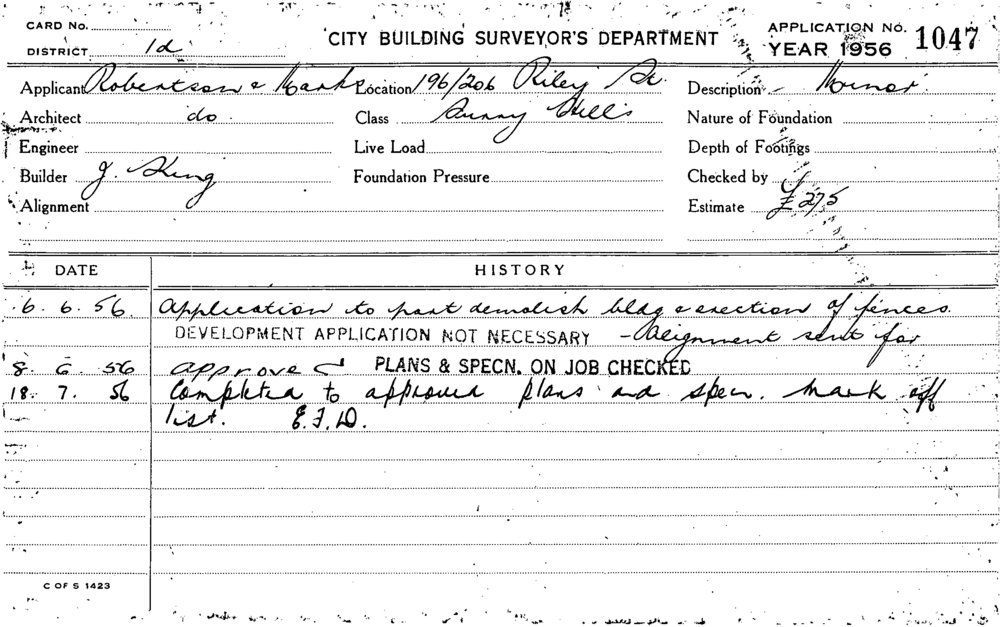 CARD No.
DISTRICT 1d
CITY BUILDING SURVEYOR'S DEPARTMENT
APPLICATION No. 1047
YEAR 1956
Applicant Robertson & Marks Location 196/206 Riley St. Description Minor
Architect do Class Surry Hills Nature of Foundation
Engineer Live Load Depth of Footings
Builder J. King Foundation Pressure Checked by
Alignment Estimate £275
DATE HISTORY
6. 6. 56. Application to part demolish bldg & erection of fences.
DEVELOPMENT APPLICATION NOT NECESSARY - Alignment sent for
8. 6. 56 approved PLANS & SPECN. ON JOB CHECKED
18. 7. 56 Completed to approved plans and specn. Mark off
list. E.J.D.
C OF S 1423